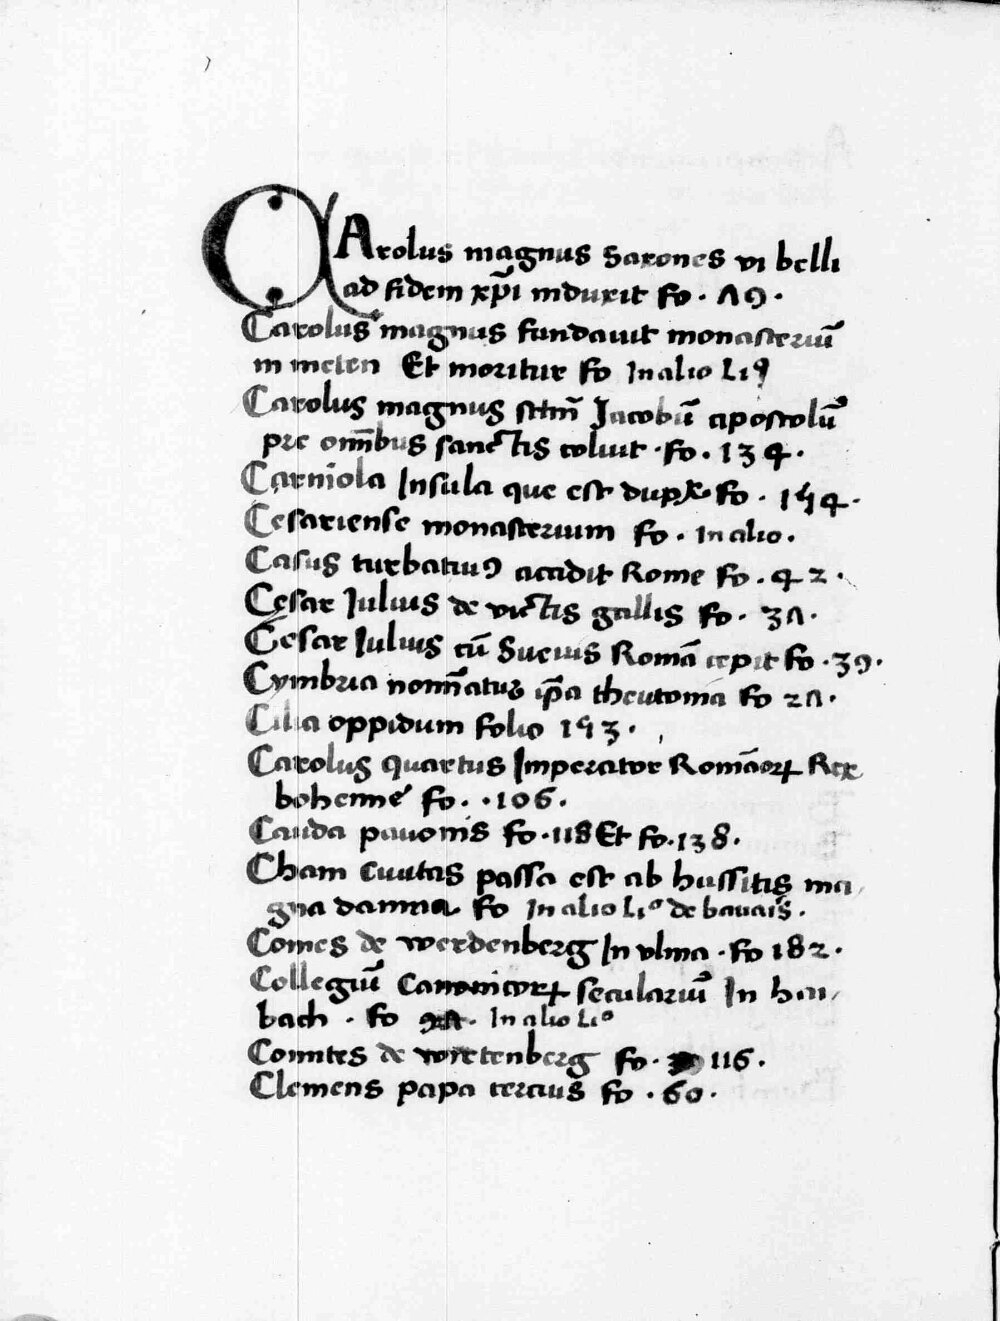 CArolus magnus saxones vi belli
ad fidem xp̄i induxit fo · 79 ·
Carolus magnus fundavit monasteriū
in meten Et moritur fo In alio Liꝰ
Carolus magnus sctm̄ Jacobū apostolū
pre om̄ibus sanctis coluit · fo · 134 ·
Carniola Insula que est dupͫx fo · 154 ·
Cesariense monasterium fo · In alio ·
Casus turbatiuꝰ accidit Rome fo · 42 ·
Cesar Julius de victis gallis fo · 37 ·
Cesar Julius cū Sueuis Romā cepit fo · 39 ·
Cymbria nom̄atur ip̄a theutoma fo 27 ·
Cilia oppidum folio 153 ·
Carolus quartus Imperator Romāoꝝ Rex
bohemie fo · · 106 ·
Cauda pavonis fo · 118 Et fo · 138 ·
Cham Civitas passa est ab hussitis ma
gna damna fo In alio Liº de bavaris ·
Comes de werdenberg In vlma · fo 182 ·
Collegiū Canonicoꝝ seculariū In hai
bach · fo · In alio Liº
Comites de wirtenberg fo · 116 ·
Clemens papa tercius fo · 60 ·